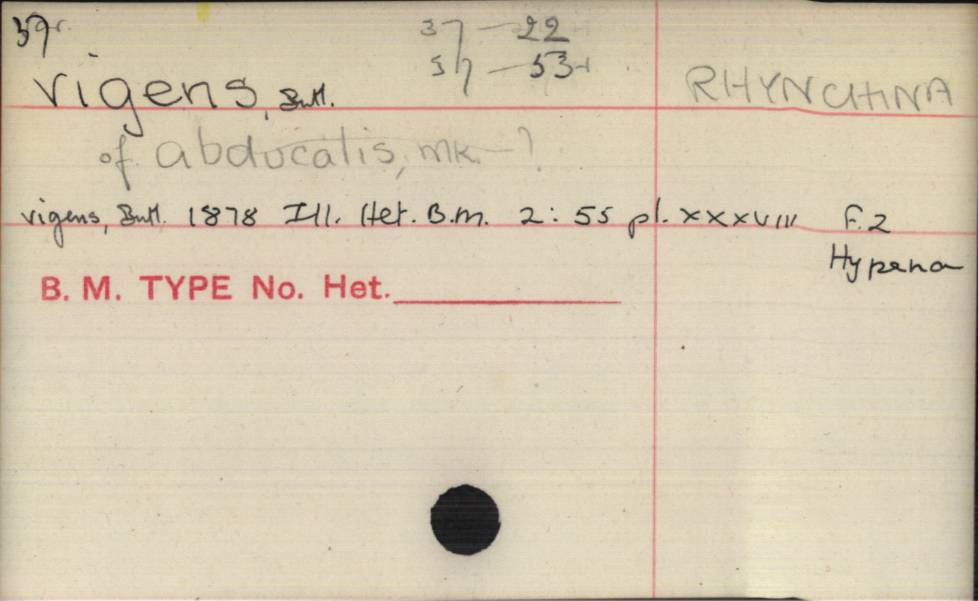 37 — 22
57 — 53
vigens, Butl. RHYNCHINA
of abducalis, mk. — ?
vigens, Butl. 1878 Ill. Het. B.M. 2: 55 pl. XXXVIII F.2
Hypena
B. M. TYPE No. Het.